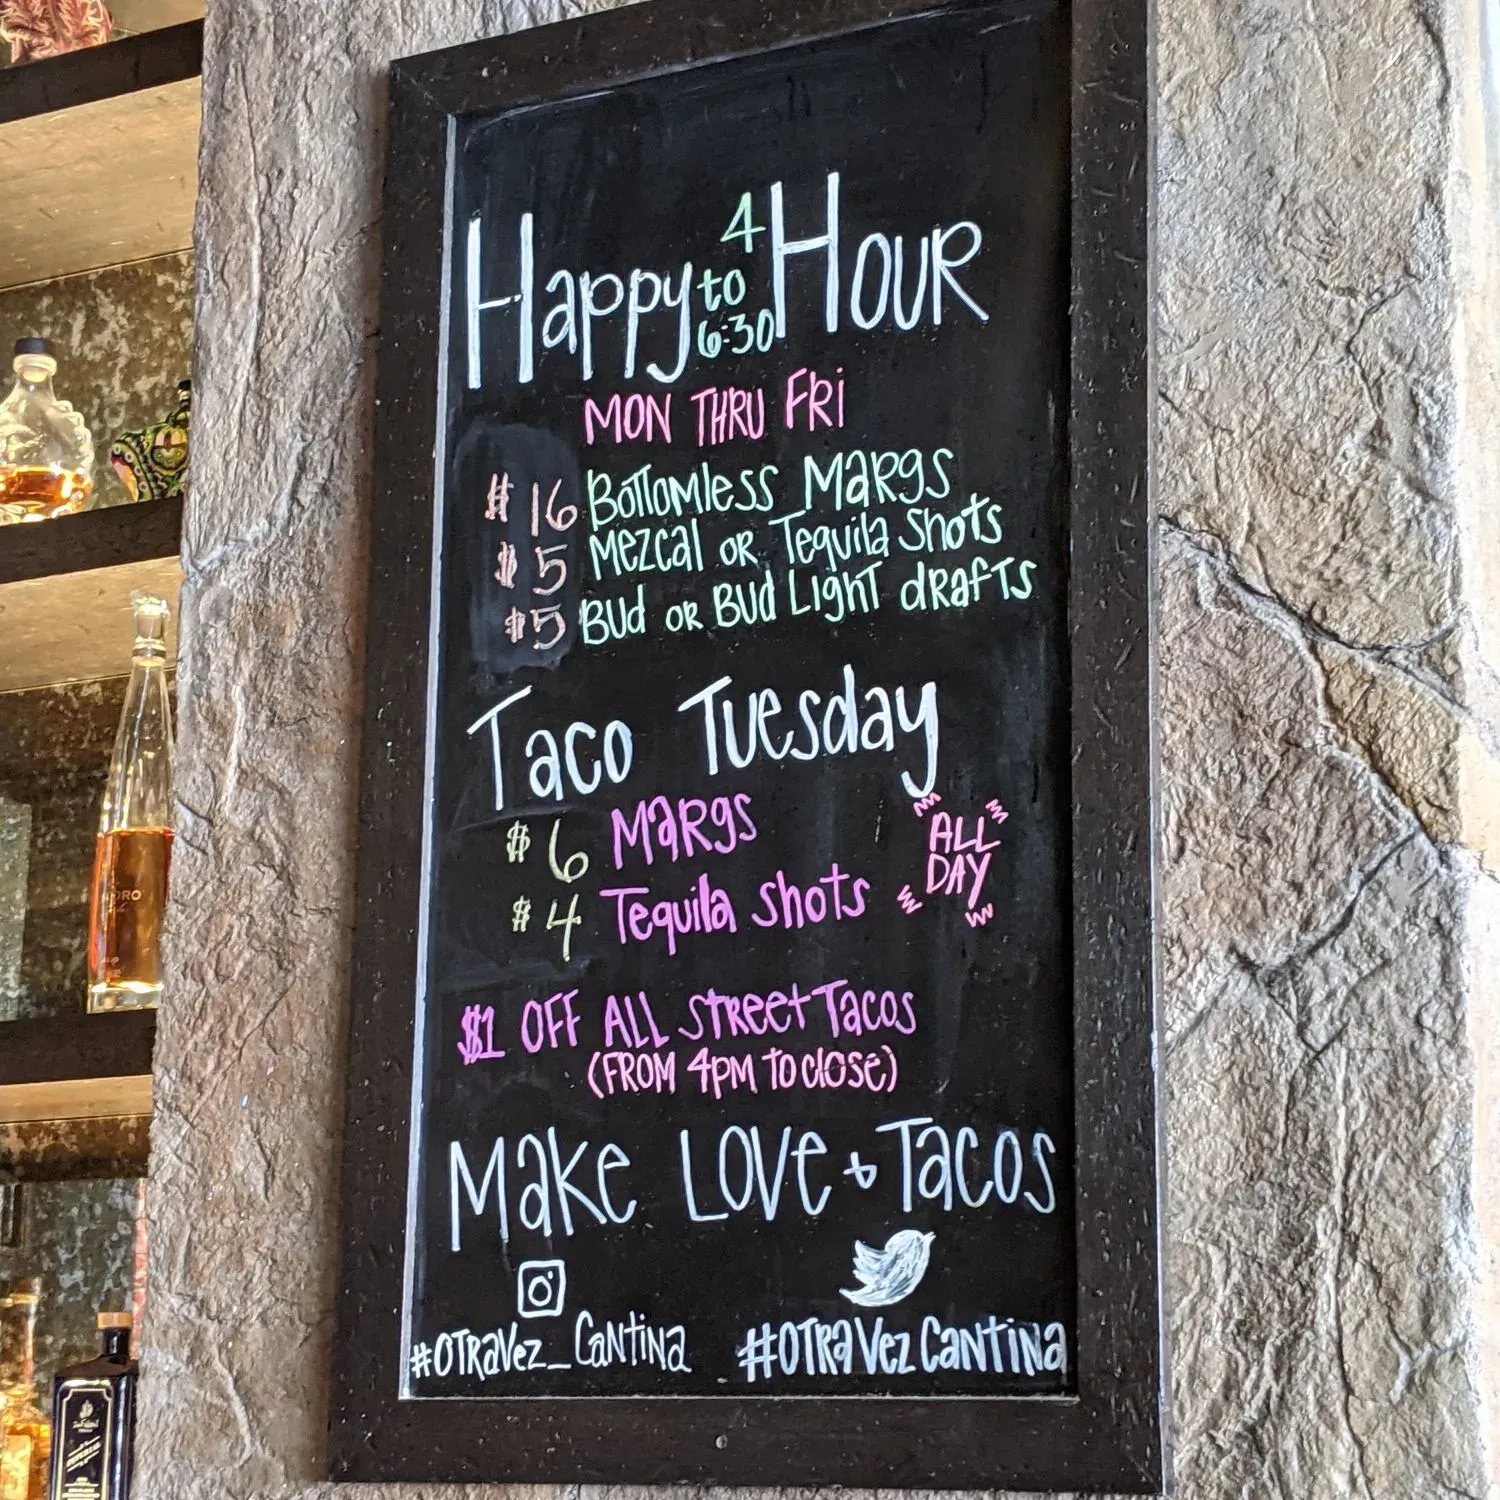 Happy 4 to 6:30 Hour
MON THRU FRI
$16 Bottomless Margs
$5 Mezcal or Tequila Shots
$5 Bud or Bud Light drafts
Taco Tuesday
$6 Margs
$4 Tequila shots
ALL
DAY
$1 OFF ALL Street Tacos
(FROM 4PM to close)
Make Love & Tacos
#OTRAVez_Cantina
#OTRAVezCantina